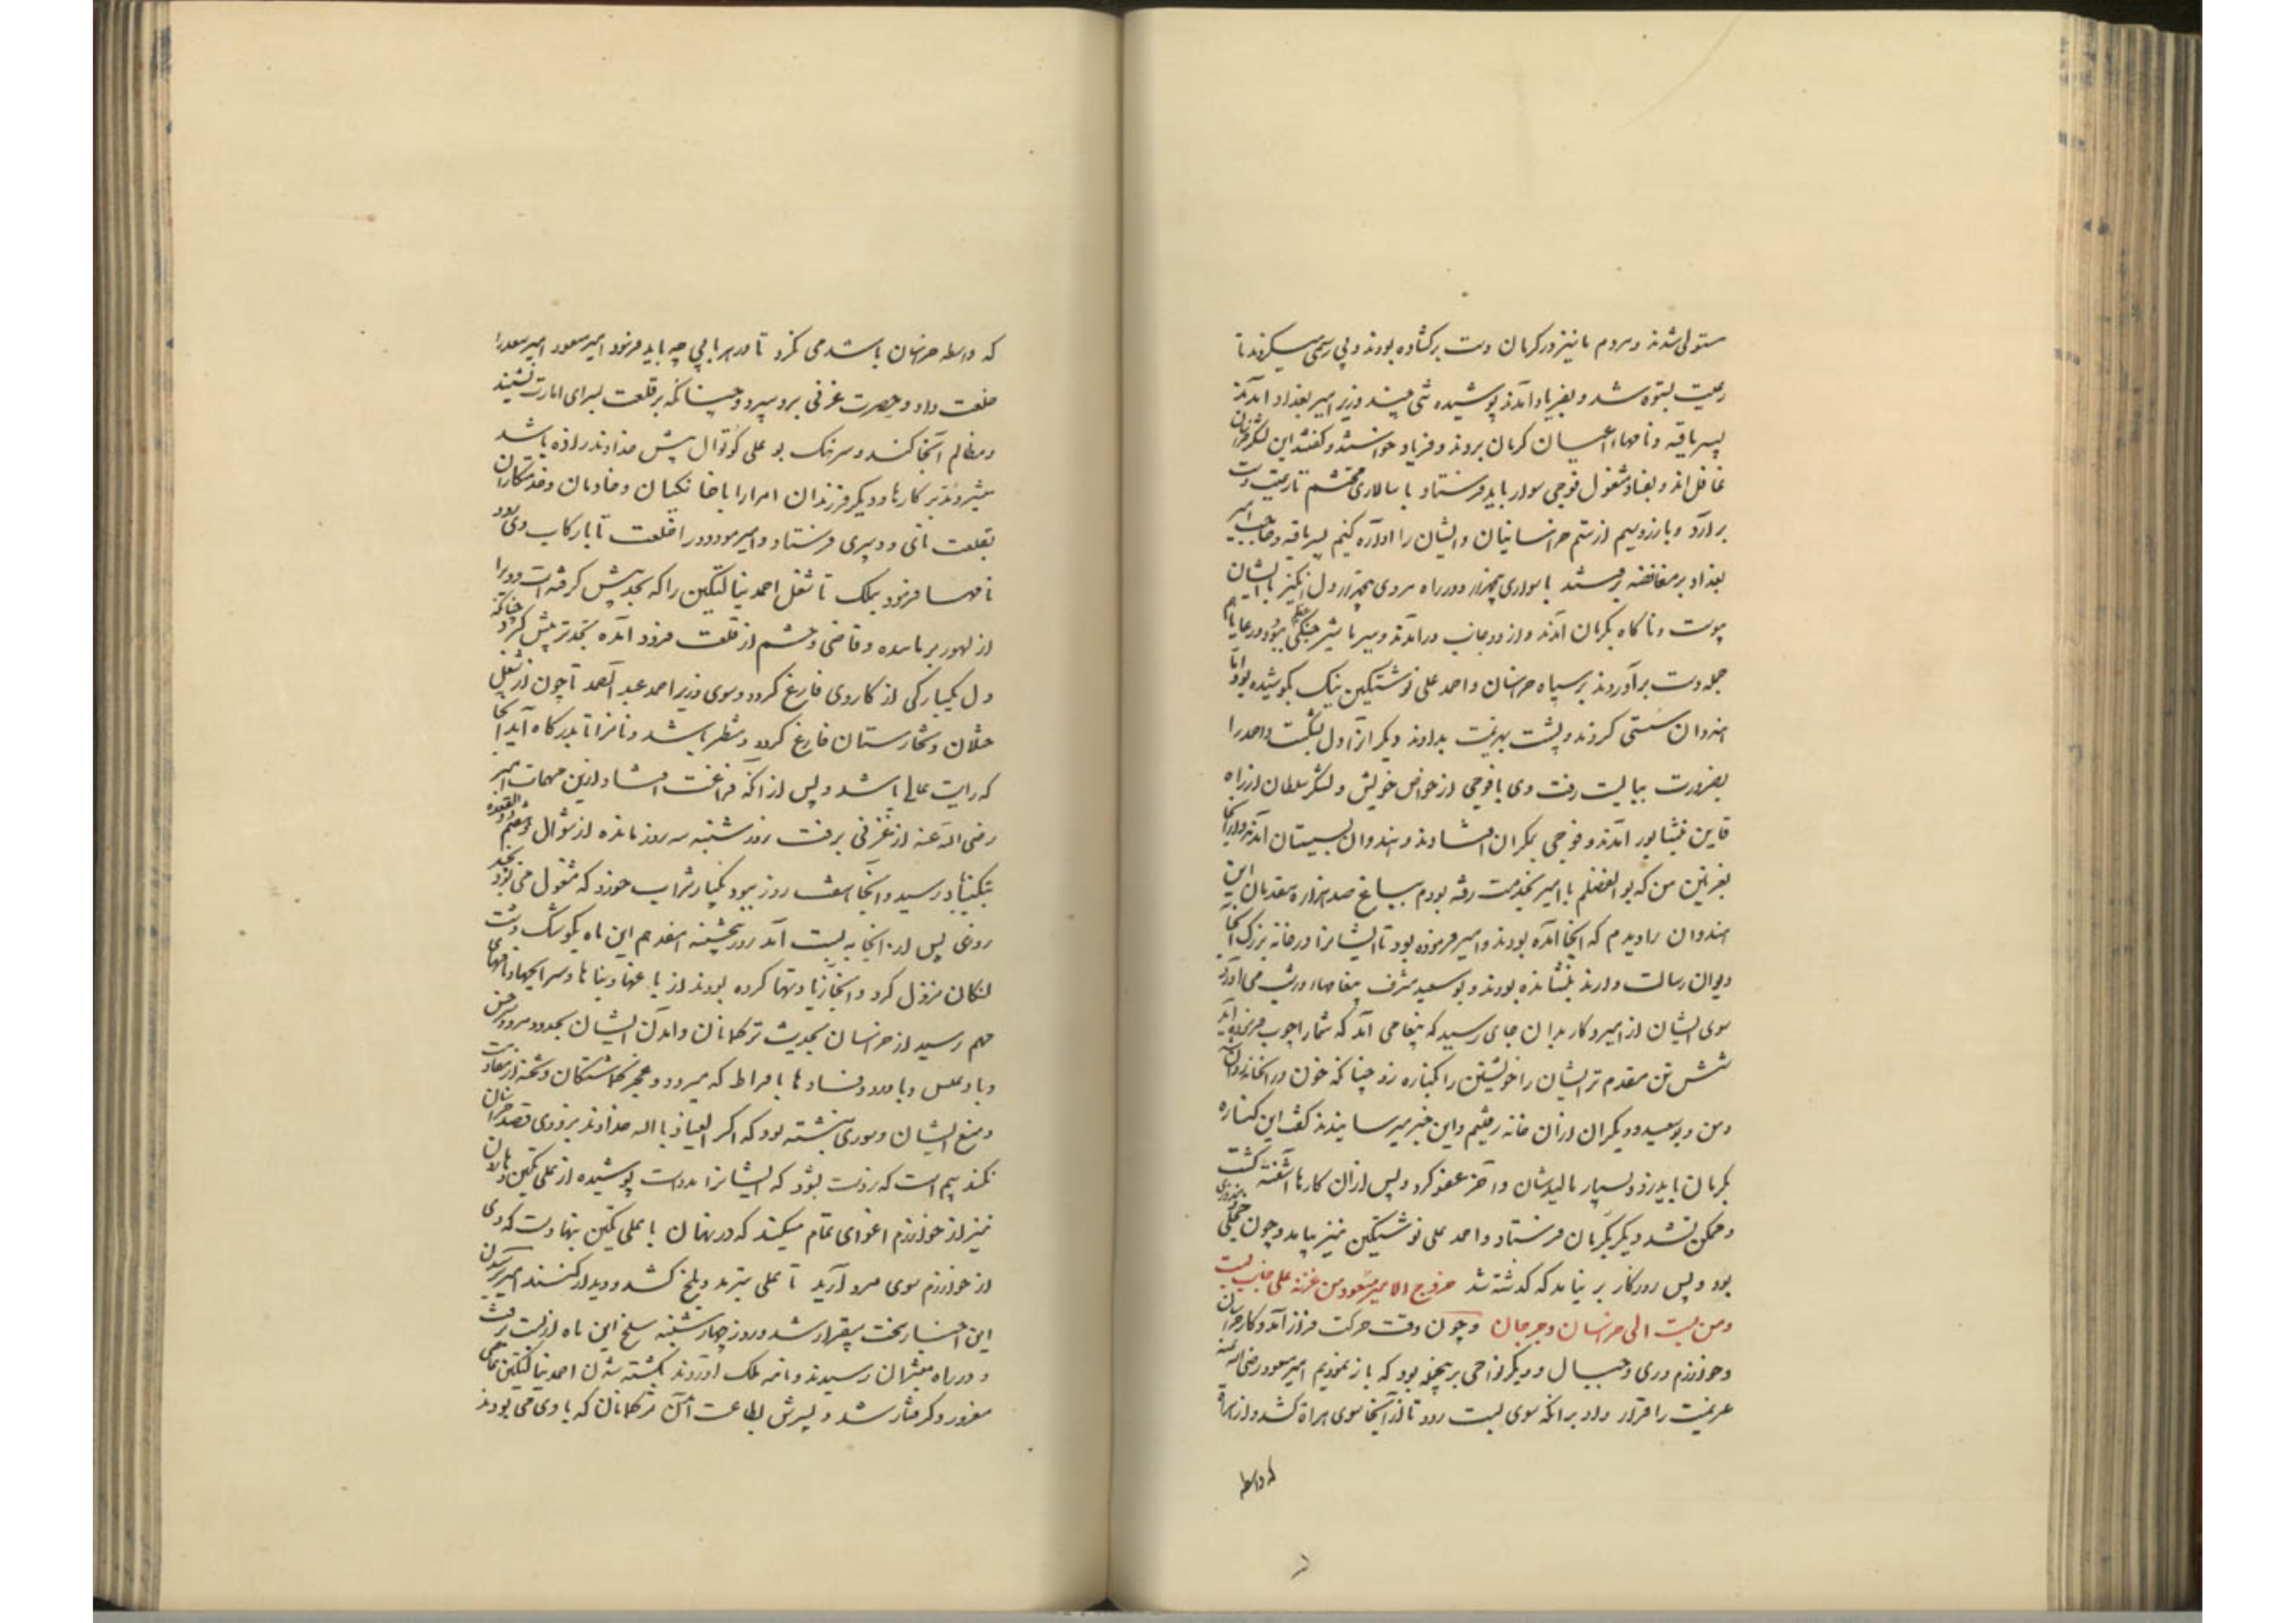 مستولی شدند و مردم ما نیز در کرمان دست برکشاده بودند و بی رسمی میکردند تا
رعیت بستوه شد و بفریاد آمدند پوشیده تنی چند وزیر امیر بغداد آمدند
پسر ماقیه و نامهاء اعیان کرمان بردند و فریاد خواستند و کفتند این لشکر خراسان
غافل اند و بفساد مشغول فوجی سوار باید فرستاد با سالاری محتشم تا رعیت دست
برآرد و باز رهیم از ستم خراسانیان و ایشان را آواره کنیم پسر ماقیه و حاجب امیر
بغداد بر مغافصه برفتند با سواری پنجهزار و در راه مردی پنجهزار دل انکیز با ایشان
پیوست و ناکاه بکرمان آمدند و از دو جانب درآمدند و جنکی عظیم ببود و رعایا هم
جمله دست برآوردند بر سپاه خراسان و احمد علی نوشتکین نیک بکوشیده بود اما
هندوان سستی کردند و پشت بهزیمت بدادند دیکرانرا دل بشکست و احمد را
بضرورت ببایست رفت وی با فوجی از خواص خویش و لشکر سلطان از راه
قاین بنشابور آمدند و فوجی بمکران افتادند و هندوان بسیستان آمدند و از آنجا
بغزنین من که بو الفضلم با امیر بخدمت رفته بودم بباغ صد هزاره مقدمان این
هندوان را دیدم که آنجا آمده بودند و امیر فرموده بود تا ایشانرا در خانه بزرک آنجا
دیوان رسالت دارند بنشانده بودند و بو سعید مشرف پیغامهاء درشت می آورد
سوی ایشان از امیر و کار بدان جای رسید که پیغامی آمد که شما را چوب فرموده آید
شش تن مقدم تر ایشان را خویشتن را بکتاره زد چنانکه خون در آن خانه روان شد
و من و بو سعید و دیکران از آن خانه رفتیم و این خبر بامیر رسانیدند کفت این کتاره
بکرمان بایست زد و بسیار بمالیدشان و آخر عفو کرد و پس از آن کارها آشفته کشت
و ممکن نشد دیکر بکرمان فرستاد و احمد علی نوشتکین نیز بیامد و چون خجلی
بود و پس روزکار بر نیامد که کذشته شد خروج الامیر مسعود من غزنه علی جانب بست
و من بست الی خراسان و جرجان و چون وقت حرکت فراز آمد و کار خراسان
و خوارزم و ری و جبال و دیکر نواحی بر پیچیده بود که باز نمودیم امیر مسعود رضی الله عنه
عزیمت را قرار داد بر آنکه سوی بست رود تا از آنجا سوی هراة کشد و از هراة
که واسطه
که واسطه خراسان باشد می نکرد تا در هر بابی چه باید فرمود امیر مسعود امیر سعد را
خلعت داد و حضرت غزنی برو سپرد و چنانکه بر قلعت بسرای امارت نشیند
و مظالم آنجا کند و سرهنک بو علی کوتوال پیش خداوند زاده باشد
مشیر و مدبر کارها و دیکر فرزندان امرا را با خانکیان و خادمان و خدمتکاران
بقلعت نای و دیری فرستاد و امیر مودود را خلعت تا با رکاب وی رود
نامها فرمود بتلک تا شغل احمد ینالتکین را که بجد پیش کرفته است و ویرا
از لهور برمانده و قاضی و حشم از قلعت فرود آمده بجدتر پیش کیرد چنانکه
دل یکبارکی از کار وی فارغ کردد و سوی وزیر احمد عبد الصمد تا چون از شغل
ختلان و تخارستان فارغ کردد منتظر باشد نامه را تا بدرکاه آید آنجا
که رایت عالی باشد و پس از آنکه فراغت افتاد ازین مهمات امیر
رضی الله عنه از غزنی برفت روز شنبه سه روز مانده از شوال و هفتم ذو القعده
بتکیناباد رسید و آنجا هفت روز ببود یکبار شراب خورد که مشغول می بود بچند
روزی پس از آنجا به بست آمد روز پنجشنبه هفدهم این ماه بکوشک دشت
لنکان نزول کرد و آنجا زیادتها کرده بودند از باغها و بناها و سرایچها و نامهای
مهم رسید از خراسان بحدیث ترکمانان و آمدن ایشان بحدود مرو و سرخس
و بادغیس و باورد و فسادها بافراط که میرود و عجز کماشتکان و شحنه از مقاومت
و منع ایشان و سوری نبشته بود که اکر العیاذ بالله خداوند بزودی قصد خراسان
نکند بیم است که از دست بشود که ایشانرا مدد است پوشیده از علی تکین و هارون
نیز از خوارزم اغوای تمام میکند که در نهان با علی تکین بنهاده است که وی
از خوارزم سوی مرو آید تا علی بترمد و بلخ کشد و دیدار کنند امیر بر رسیدن
این اخبار سخت بیقرار شد و روز چهارشنبه سلخ این ماه از بست برفت
و در راه مبشران رسیدند و نامه تلک آوردند بکشته شدن احمد ینالتکین عاصی
مغرور و کرفتار شد و پسرش بطاعت آمدن ترکمانان که با وی می بودند